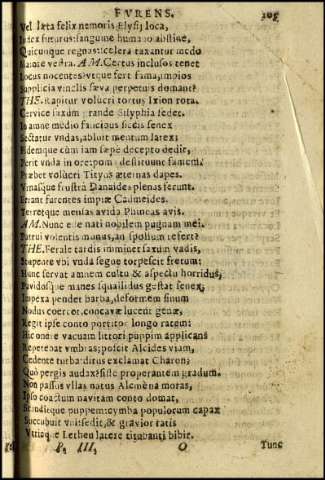 FVRENS.
Vel læta felix nemoris Elysij loca,
Iudex futurus: sanguine humano abstine,
Quicunque regnas: scelera taxantur modo
Maiore vestra. AM. Certus inclusos tenet
Locus nocentes: vtque fert fama, impios
Supplicia vinclis sæua perpetuis domant?
THE. Rapitur volucri tortus Ixion rota.
Ceruice saxum grande Sisyphia sedet.
In amne medio faucibus siccis senex
Sectatur vndas, abluit mentum latex:
Fidemque cùm iam sæpe decepto dedit,
Perit vnda in ore: poma destituunt famem.
Præbet volucri Tityus æternas dapes.
Vrnasque frustrà Danaides plenas gerunt.
Errant furentes impiæ Cadmeides.
Terretque mensas auida Phineas auis.
AM. Nunc ede nati nobilem pugnam mei.
Patrui volentis munus, an spolium refert?
THE. Ferale tardis imminet saxum vadis,
Stupente vbi vnda segne torpescit fretum:
Hunc seruat amnem cultu & aspectu horridus,
Pauidosque manes squallidus gestat senex,
Impexa pendet barba, deformem sinum
Nodus coercet, concauæ lucent genæ,
Regit ipse conto portitor longo ratem:
Hic onere vacuam littori puppim applicans
Repetebat vmbras; poscit Alcides viam,
Cedente turba: dirus exclamat Charon:
Quò pergis audax? siste properantem gradum.
Non passus vllas natus Alcmena moras,
Ipso coactum nauitam conto domat,
Scanditque puppem: cymba populorum capax
Succubuit vni: sedit, & grauior ratis
Vtrinque Letheu latere titubanti bibit.
O Tunc